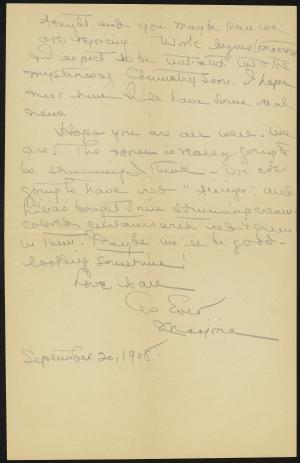 tonight and you maybe sure we
are rejoicing. Work begins tomorrow
and I expect to be initiated into the
mysteries of Chemistry soon. I hope
next time I'll have some real
news.
Hope you are all well. We
are. The room is really going to
be stunning I think - we are
going to have red " " and
bought some stunning cream
colored curtains with red & green
in them. Maybe we'll be good-
looking sometime!
Love to all
As Ever
Maxine
September 20, 1908.